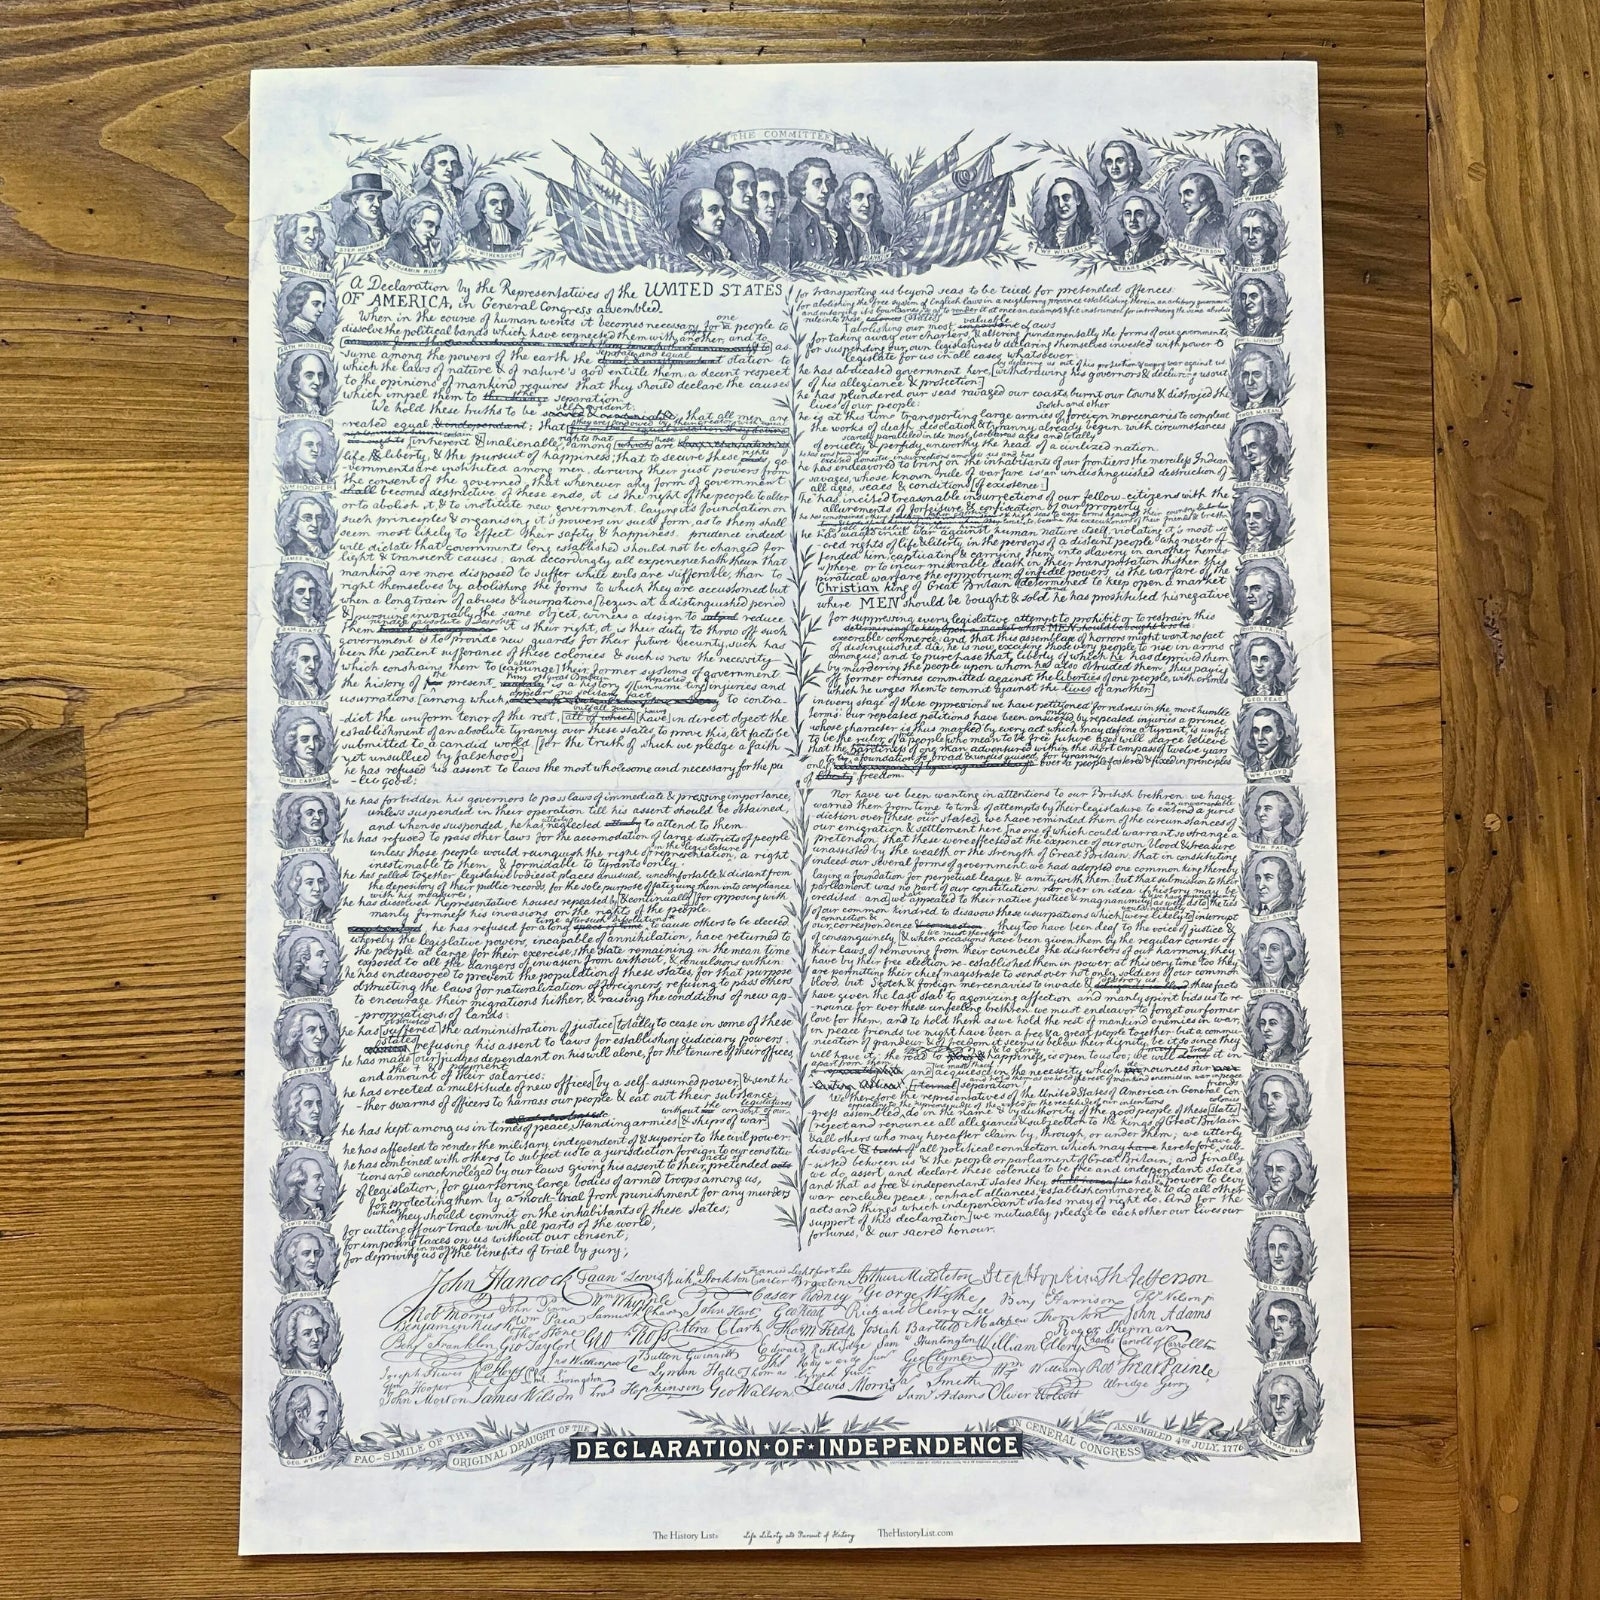 THE COMMITTEE
STEP. HOPKINS
BENJAMIN RUSH
WM WILLIAMS
FRA'S LEWIS
FRS HOPKINSON
WM WHIPPLE
ROBT MORRIS
EDW. RUTLEDGE
ARTH. MIDDLETON
WM HOOPER
JAMES WILSON
SAM. CHASE
GEO. CLYMER
SAML ADAMS
SAM. HUNTINGTON
JAS. SMITH
LEWIS MORRIS
OLIVER WOLCOTT
GEO. WYTHE
PHIL. LIVINGSTON
THOS M'KEAN
RICH. H. LEE
ROBT T. PAINE
GEO. READ
WM. FLOYD
WM. PACA
JOS. HEWES
FRANCIS L. LEE
GEO. ROSS
LYMAN HALL
A Declaration by the Representatives of the UNITED STATES
OF AMERICA, in General Congress assembled.
When in the course of human events it becomes necessary for one people to
dissolve the political bands which have connected them with another, and to
as-
separate and equal
sume among the powers of the earth the station to
which the laws of nature & of nature's god entitle them a decent respect
to the opinions of mankind requires that they should declare the causes
which impel them to the separation.
We hold these truths to be self evident; that all men are
created equal
life & liberty, & the pursuit of happiness; that to secure these rights go
-vernments are instituted among men, deriving their just powers from
the consent of the governed, that whenever any form of government
shall becomes destructive of these ends, it is the right of the people to alter
or to abolish it, & to institute new government, laying its foundation on
such principles & organising it's powers in such form, as to them shall
seem most likely to effect their safety & happiness. prudence indeed
will dictate that governments long established should not be changed for
light & transient causes: and accordingly all experience hath shewn that
mankind are more disposed to suffer while evils are sufferable, than to
right themselves by abolishing the forms to which they are accustomed but
when a long train of abuses & usurpations [begun at a distinguished period
&] pursuing invariably the same object, evinces a design to reduce
them it is their right, it is their duty to throw off such
government & to provide new guards for their future security, such has
been the patient sufferance of these colonies & such is now the necessity
which constrains them to [expunge] their former systems of government
the history of the present
is a history of [unremitting] injuries and
usurpations [among which, to contra-
-dict the uniform tenor of the rest, [all of which] [have] in direct object the
establishment of an absolute tyranny over these states to prove this, let facts be
submitted to a candid world [for the truth of which we pledge a faith
yet unsullied by falsehood]
he has refused his assent to laws the most wholesome and necessary for the pu
-lic good;
he has forbidden his governors to pass laws of immediate & pressing importance,
unless suspended in their operation till his assent should be obtained,
and when so suspended, he has neglected to attend to them.
he has refused to pass other laws for the accomodation of large districts of people
unless those people would relinquish the right of representation, a right
inestimable to them, & formidable to tyrants only:
he has called together legislative bodies at places unusual, uncomfortable & distant from
the depository of their public records, for the sole purpose of fatiguing them into compliance
with his measures;
he has dissolved Representative houses repeatedly [& continually] for opposing with
manly firmness his invasions on the rights of the people.
he has refused for a long to cause others to be elected
whereby the legislative powers, incapable of annihilation, have returned to
the people at large for their exercise, the state remaining in the mean time
exposed to all the dangers of invasion from without, & convulsions within
he has endeavored to prevent the population of these states, for that purpose
obstructing the laws for naturalization of foreigners, refusing to pass others
to encourage their migrations hither, & raising the conditions of new ap-
-propriations of lands:
he has [suffered] the administration of justice [totally to cease in some of these
states] refusing his assent to laws for establishing judiciary powers.
he has made [our] judges dependant on his will alone, for the tenure of their offices,
and amount of their salaries:
he has erected a multitude of new offices [by a self assumed power] & sent hi-
-ther swarms of officers to harrass our people & eat out their substance
he has kept among us in times of peace, standing armies [& ships of war]
he has affected to render the military independent of & superior to the civil power:
he has combined with others, to subject us to a jurisdiction foreign to our constitu-
tions and unacknoleged by our laws giving his assent to their pretended acts
of legislation, for quartering large bodies of armed troops among us,
for protecting them by a mock-trial from punishment for any murders
they should commit on the inhabitants of these states;
for cutting off our trade with all parts of the world;
for imposing taxes on us without our consent;
for depriving us of the benefits of trial by jury;
for transporting us beyond seas to be tried for pretended offences:
for abolishing the free system of English laws in a neighboring province establishing therein an arbitrary government
and enlarging its boundaries so as to render it at once an example & fit instrument for introducing the same absolute
rule into these
for taking away our charters, & altering fundamentally the forms of our governments
for suspending our own legislatures & declaring themselves invested with power to
legislate for us in all cases whatsoever:
he has abdicated government here, [withdrawing his governors & declaring us out
of his allegiance & protection]
he has plundered our seas ravaged our coasts burnt our towns & distroied the
lives of our people:
Scotch and other
he is at this time transporting large armies of foreign mercenaries to compleat
the works of death, desolation & tyranny already begun with circumstances
of cruelty & perfidy unworthy the head of a civilized nation.
he has endeavored to bring on the inhabitants of our frontiers the merciless Indian
savages, whose known rule of warfare is an undistinguished destruction of
all ages, sexes & conditions [of existence:]
he has incited treasonable insurrections of our fellow-citizens with the
allurements of forfeiture & confiscation of our property:
he has waged cruel war against human nature itself, violating it's most sa
-cred rights of life & liberty in the persons of a distant people who never of
fended him, captivating & carrying them into slavery in another hemis-
-phere or to incur miserable death in their transportation thither. this
piratical warfare the opprobrium of infidel powers is the warfare of the
Christian king of Great Britain [determined to keep open a market
where MEN should be bought & sold he has prostituted his negative
for suppressing every legislative attempt to prohibit or to restrain this
execrable commerce; and that this assemblage of horrors might want no fact
of distinguished die, he is now exciting those very people to rise in arms
among us, and to purchase that liberty of which he has deprived them
by murdering the people upon whom he also obtruded them; thus paying
off former crimes committed against the liberties of one people, with crimes
which he urges them to commit against the lives of another]
in every stage of these oppressions we have petitioned for redress in the most humble
terms: our repeated petitions have been answered by repeated injuries a prince
whose character is thus marked by every act which may define a tyrant, is unfit
to be the ruler of a people [who mean to be free future ages will scarce believe
that the hardiness of one man adventured within the short compass of twelve years
only over a people fostered & fixed in principles
of freedom.
Nor have we been wanting in attentions to our British brethren. we have
warned them from time to time of attempts by their legislature to extend a juris
diction over [these our states] we have reminded them of the circumstances of
our emigration & settlement here, [no one of which could warrant so strange a
pretension; that these were effected at the expence of our own blood & treasure
unassisted by the wealth or the strength of Great Britain: that in constituting
indeed our several forms of government, we had adopted one common king thereby
laying a foundation for perpetual league & amity with them: but that submission to their
parliament was no part of our constitution, nor ever in idea if history may be
credited: and] we appealed to their native justice & magnanimity as well as to the ties
of our common kindred to disavow these usurpations which [were likely to] interrupt
our correspondence they too have been deaf to the voice of justice &
of consanguinity, [& when occasions have been given them by the regular course of
their laws of removing from their councils the disturbers of our harmony, they
have by their free election re-established them in power at this very time too they
are permitting their chief magistrate to send over not only soldiers of our common
blood, but Scotch & foreign mercenaries to invade & these facts
have given the last stab to agonizing affection and manly spirit bids us to re-
nounce for ever these unfeeling brethren we must endeavor to forget our former
love for them, and to hold them as we hold the rest of mankind enemies in war,
in peace friends we might have been a free & a great people together but a commu-
nication of grandeur & of freedom it seems is below their dignity, be it so since they
will have it: the road to happiness, is open to us too; we will it in
and] acquiesce in the necessity which our
[eternal] separation
We therefore the representatives of the United States of America in General Con
gress assembled, do in the name & by authority of the good people of these [states]
[reject and renounce all allegiance & subjection to the kings of Great Britain
& all others who may hereafter claim by, through, or under them; we utterly
dissolve all political connection which may heretofore, sub-
-sisted between us & the people or parliament of Great Britain; and finally
we do assert and declare these colonies to be free and independent states,
and that as free & independent states they have power to levy
war conclude peace, contract alliances, establish commerce & to do all other
acts and things which independent states may of right do. And for the
support of this declaration] we mutually pledge to each other our lives our
fortunes, & our sacred honour.
John Hancock
Francis Lightfoot Lee
Arthur Middleton
Step Hopkins
Th Jefferson
Rob Morris
John Penn
Wm Whipple
Carter Braxton
Caesar Rodney
George Wythe
Benj Harrison
Thos Nelson jr
Benjamin Rush
Wm Paca
Samuel Chase
John Hart
Geo Read
Richard Henry Lee
Matthew Thornton
John Adams
Benj Franklin
Geo Taylor
Thos Stone
Geo Ross
Abra Clark
Tho M Kean
Josiah Bartlett
Roger Sherman
Button Gwinnett
Edward Rutledge
Sam Huntington
William Ellery
Charles Carroll of Carrollton
Joseph Hewes
Wm Floyd
Phil. Livingston
Lyman Hall
Geo Clymer
Wm Williams
Rob Treat Paine
Wm Hooper
John Morton
James Wilson
Fras Hopkinson
Geo Walton
Lewis Morris
Jas Smith
Sam Adams
Oliver Wolcott
Elbridge Gerry
FAC-SIMILE OF THE
ORIGINAL DRAUGHT OF THE
DECLARATION★OF★INDEPENDENCE
IN GENERAL CONGRESS
ASSEMBLED 4TH JULY, 1776
The History List Life Liberty and Pursuit of History TheHistoryList.com